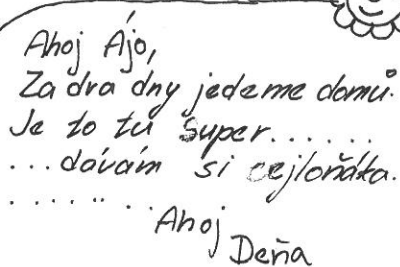 Ahoj Ájo,
Za dva dny jedeme domů.
Je to tu super......
...dávám si cejloňáka.
........
Ahoj
Deňa